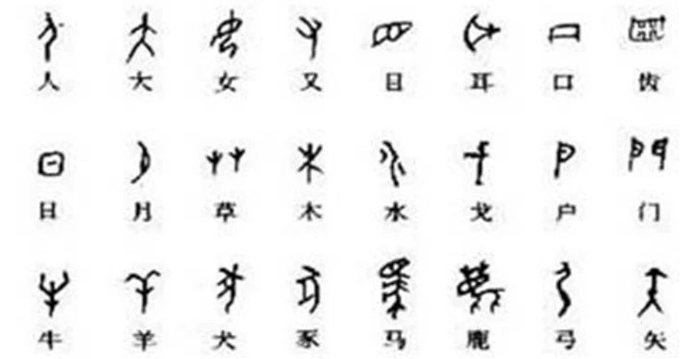 人 大 女 又 目 耳 口 齿
日 月 草 木 水 戈 户 门
牛 羊 犬 豕 马 鹿 弓 矢